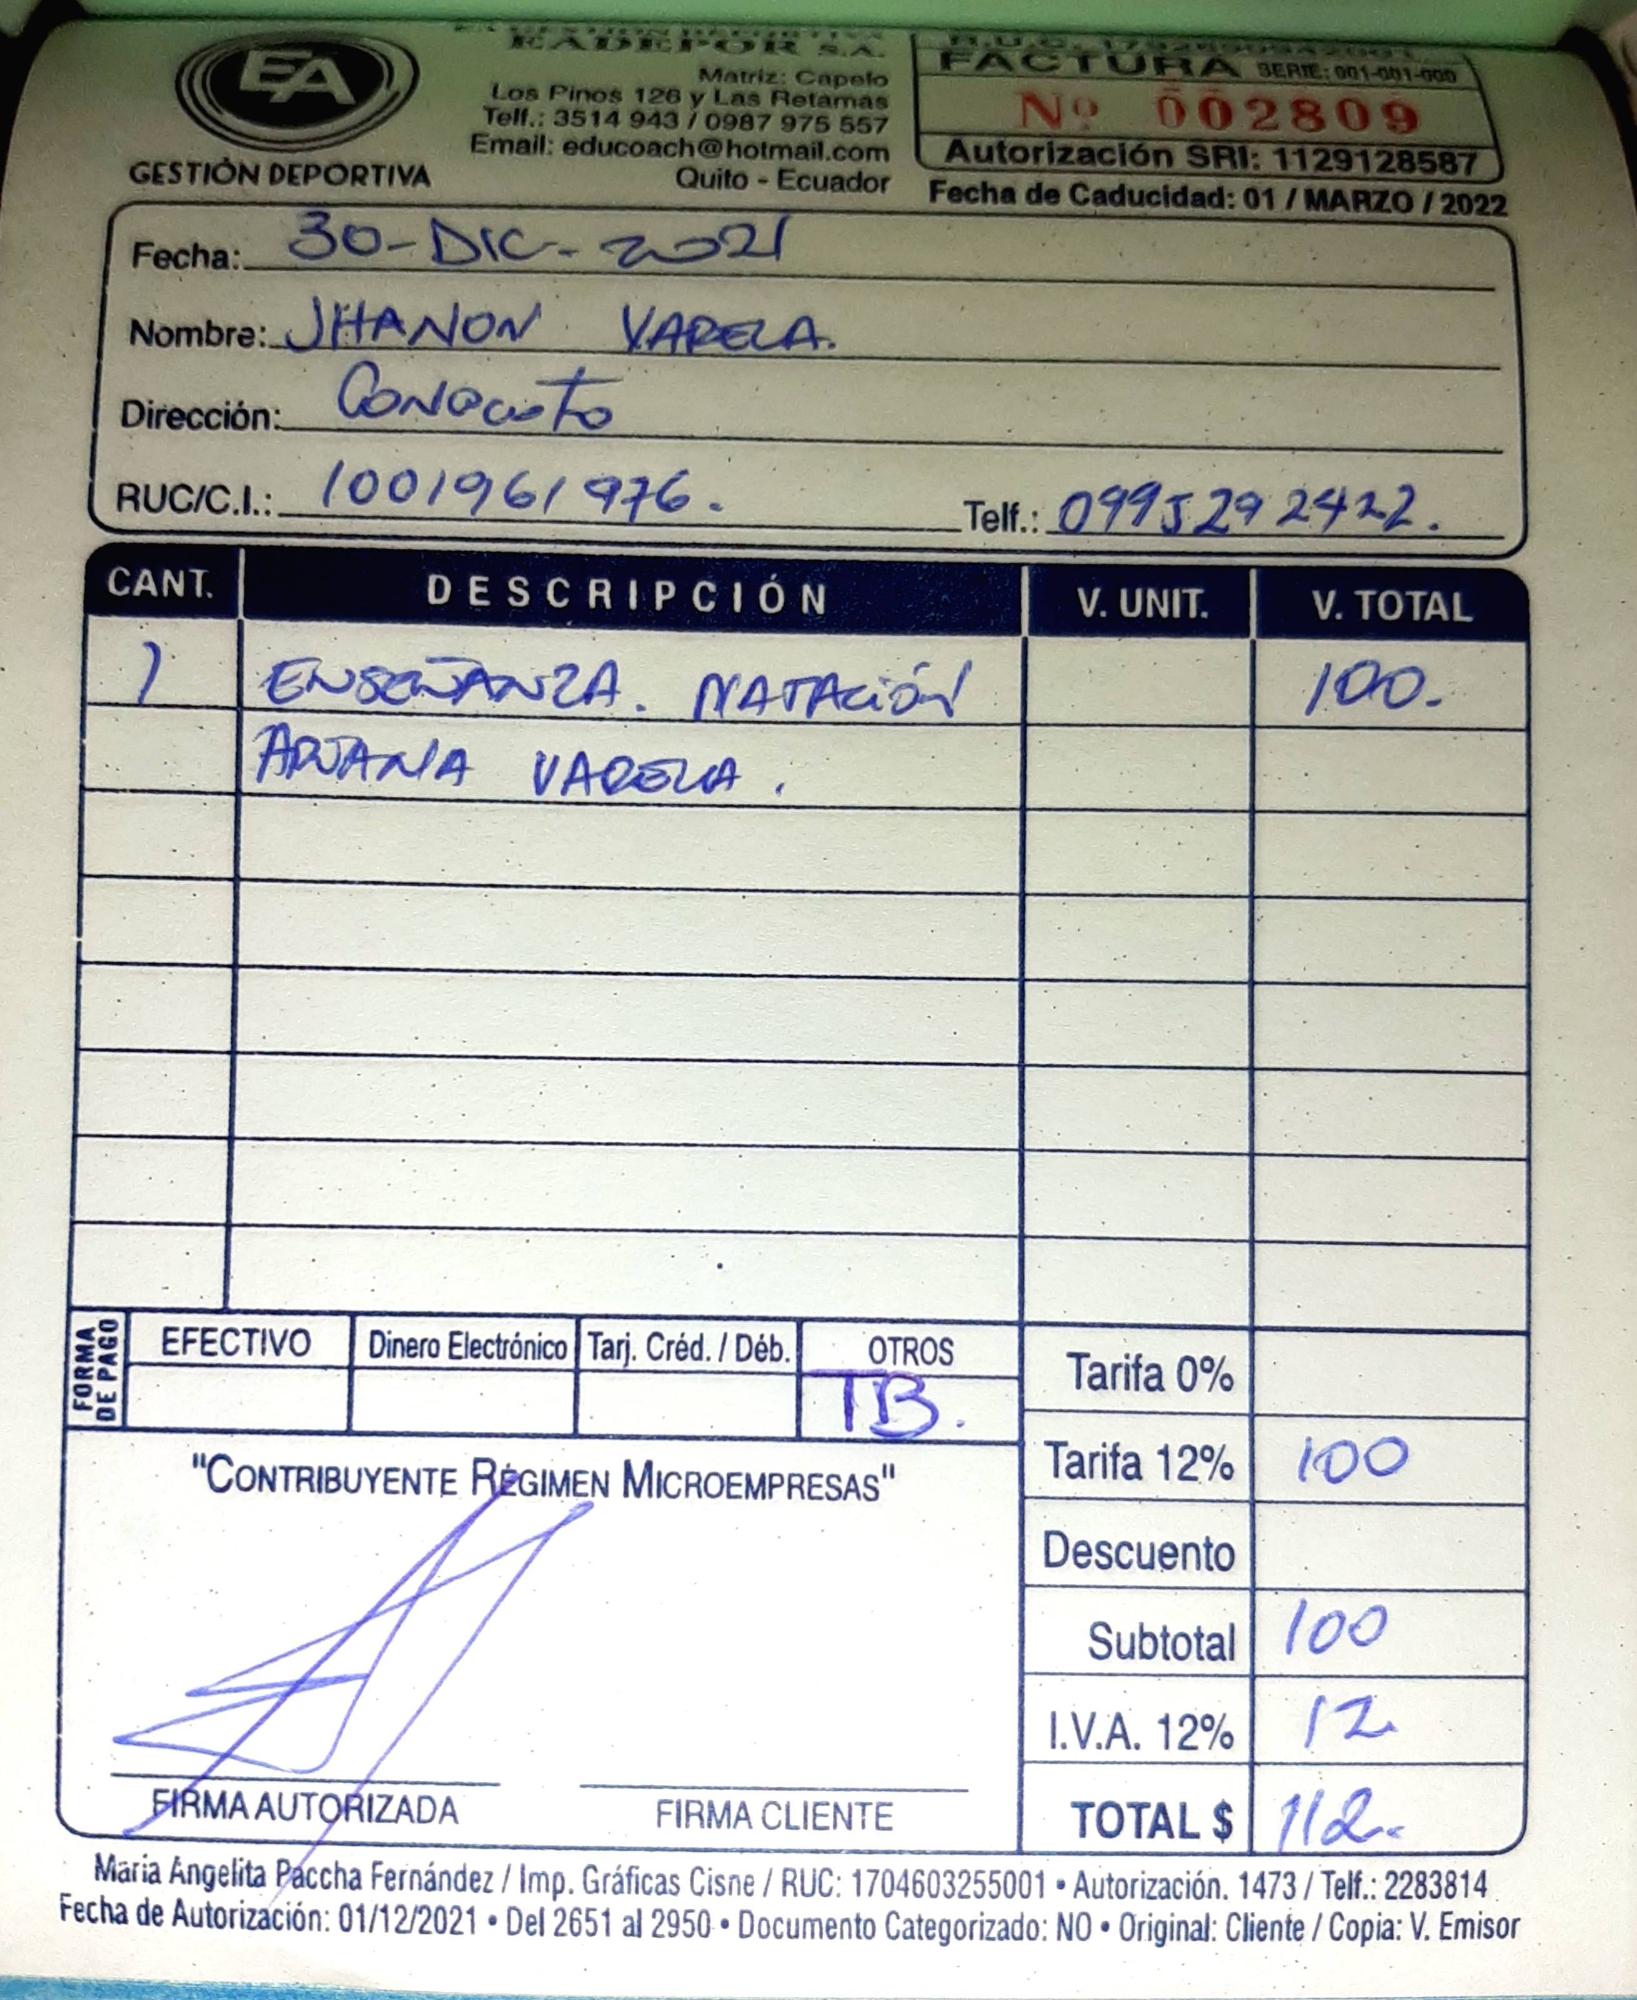 EADEPOR S.A.
EA
GESTIÓN DEPORTIVA
Matriz: Capelo
Los Pinos 126 y Las Retamas
Telf.: 3514 943 / 0987 975 557
Email: educoach@hotmail.com
Quito - Ecuador
FACTURA SERIE: 001-001-000
Nº 002809
Autorización SRI: 1129128587
Fecha de Caducidad: 01 / MARZO / 2022
Fecha: 30-DIC-2021
Nombre: JHANON VARELA.
Dirección: Conocoto
RUC/C.I.: 1001961976. Telf.: 0995292422.
CANT. DESCRIPCIÓN V. UNIT. V. TOTAL
1 ENSEÑANZA. NATACIÓN 100.
VARELA.
FORMA DE PAGO EFECTIVO Dinero Electrónico Tarj. Créd. / Déb. OTROS
TB.
Tarifa 0%
Tarifa 12% 100
Descuento
Subtotal 100
I.V.A. 12% 12
TOTAL $ 112.
"CONTRIBUYENTE RÉGIMEN MICROEMPRESAS"
FIRMA AUTORIZADA FIRMA CLIENTE
Maria Angelita Paccha Fernández / Imp. Gráficas Cisne / RUC: 1704603255001 • Autorización. 1473 / Telf.: 2283814
Fecha de Autorización: 01/12/2021 • Del 2651 al 2950 • Documento Categorizado: NO • Original: Cliente / Copia: V. Emisor